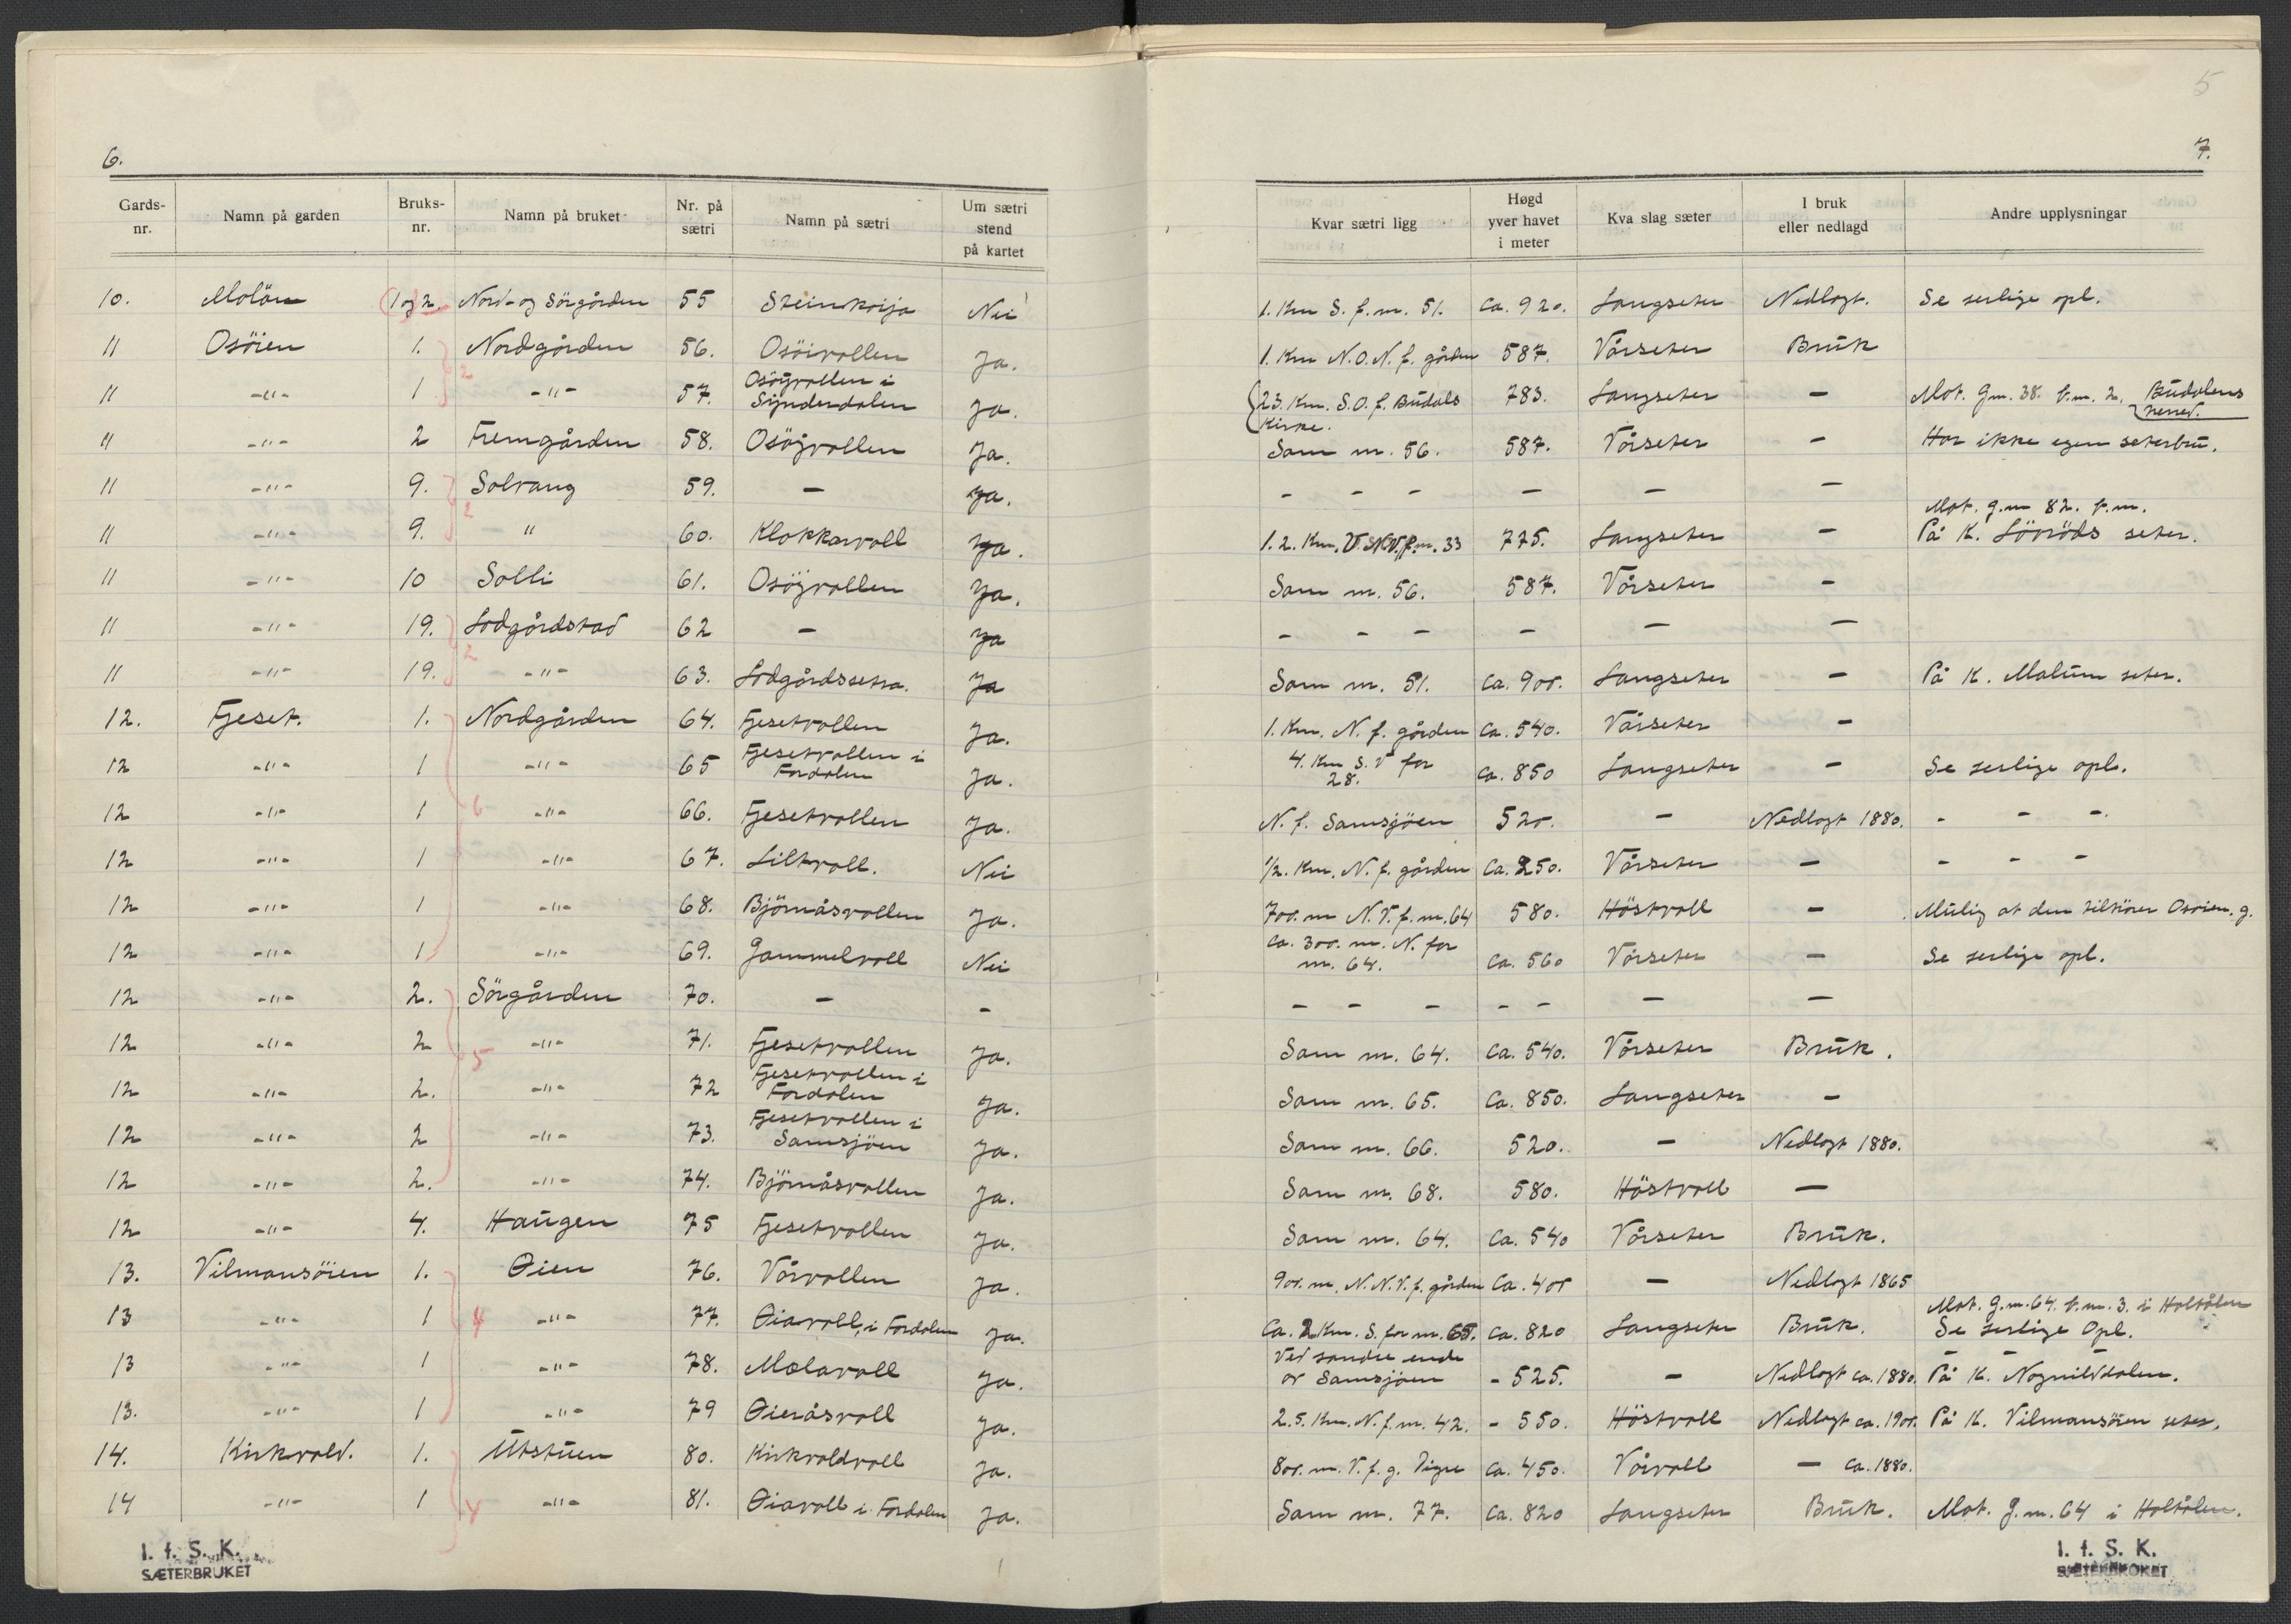 5
6.
7.
Gards-nr. Namn på garden Bruks-nr. Namn på bruket Nr. på sætri Namn på sætri Um sætri stend på kartet Kvar sætri ligg Høgd yver havet i meter Kva slag sæter I bruk eller nedlagd Andre upplysningar
10. Moløen 1 og 2 Nord- og Sörgården 55 Steinkoija Nei 1. Km S. f. nr. 51. Ca. 920. Langseter Nedlagt. Se serlige opl.
11 Osöien 1. Nordgården 56. Osöivollen Ja. 1. Km N.O.N. f. gården 587. Vårseter Bruk
11 -"- 1 -"- 57. Osöyvollen i Synderdalen Ja. 23. Km. S.O. f. Budals Kirke. 783. Langseter - Mot. G.nr. 38. b.nr. 2. Budalens herred.
11 -"- 2 Fremgården 58. Osöyvollen Ja. Som nr. 56. 587. Vårseter - Har ikke egen seterbu.
11 -"- 9. Solvang 59. - Ja. - - - - - -
11 -"- 9. " 60. Klokkarvoll Ja. 1.2. Km. V.S.V. f. nr. 33 775. Langseter - Mot. g.nr 82. b.nr. På K. Lövröds seter.
11 -"- 10 Solli 61. Osöyvollen Ja. Som nr. 56. 587. Vårseter -
11 -"- 19. Lodgårdstad 62 - Ja - - - - - -
11 -"- 19. -"- 63. Lodgårdssetra. Ja Som nr. 51. Ca. 900. Langseter - På K. Malum seter.
12. Fjeset. 1. Nordgården 64. Fjesetvollen Ja. 1. Km. N. f. gården Ca. 540. Vårseter -
12 -"- 1 -"- 65 Fjesetvollen i Fordalen Ja. 4. Km S.V for 28. Ca. 850 Langseter - Se serlige opl.
12 -"- 1 -"- 66. Fjesetvollen Ja. N. f. Samsjöen 520. - Nedlagt 1880. - - -
12 -"- 1 -"- 67. Liltvoll. Nei 1/2. Km. N. f. gården Ca. 250. Vårseter - - - -
12 -"- 1 -"- 68. Björnåsvollen Ja. 700. m N.V. f. nr. 64 580. Höstvoll - Mulig at den tilhörer Osöien. g.
12 -"- 1 -"- 69. Gammelvoll Nei Ca. 300. m. N. for nr. 64. Ca. 560 Vårseter - Se serlige opl.
12 -"- 2. Sörgården 70. - - - - - - - - -
12 -"- 2 -"- 71. Fjesetvollen Ja. Som nr. 64. Ca. 540. Vårseter Bruk.
12 -"- 2. -"- 72 Fjesetvollen i Fordalen Ja. Som nr. 65. Ca. 850. Langseter -
12 -"- 2 -"- 73. Fjesetvollen i Samsjöen Ja. Som nr. 66. 520. - Nedlagt 1880.
12 -"- 2. -"- 74. Björnåsvollen Ja. Som nr. 68. 580. Höstvoll -
12 -"- 4. Haugen 75 Fjesetvollen Ja. Som nr. 64. Ca. 540 Vårseter Bruk.
13. Vilmansöien 1. Øien 76. Vårvollen Ja. 900. m. N.N.V. f. gården Ca. 400 - Nedlagt 1865
13 -"- 1 -"- 77. Øiavoll, i Fordalen Ja. Ca. 2 Km. S. for nr. 65. Ca. 820 Langseter Bruk. Mot. G.nr. 64. b.nr. 3. i Holtålen Se serlige Opl.
13 -"- 1 -"- 78. Molavoll Ja. Ved söndre ende av Samsjöen - 525. - Nedlagt ca. 1880. På K. Nognilddalen.
13. -"- 1 -"- 79 Øieråsvoll Ja. 2.5. Km. N. f. nr. 42. - 550. Höstvoll Nedlagt ca. 1900. På K. Vilmansöien seter.
14. Kirkvold. 1. Utstuen 80. Kirkvoldvoll Ja. 800. m. V. f. g. Digre Ca. 450. Vårvoll - Ca. 1880.
14 -"- 1 -"- 81. Øiavoll i Fordalen Ja. Som nr. 77. Ca. 820 Langseter Bruk. Mot. G.nr. 64 i Holtålen.
2
2
2
6
5
4
4
I. f. S. K.
SÆTERBRUKET
I. f. S. K.
SÆTERBRUKET